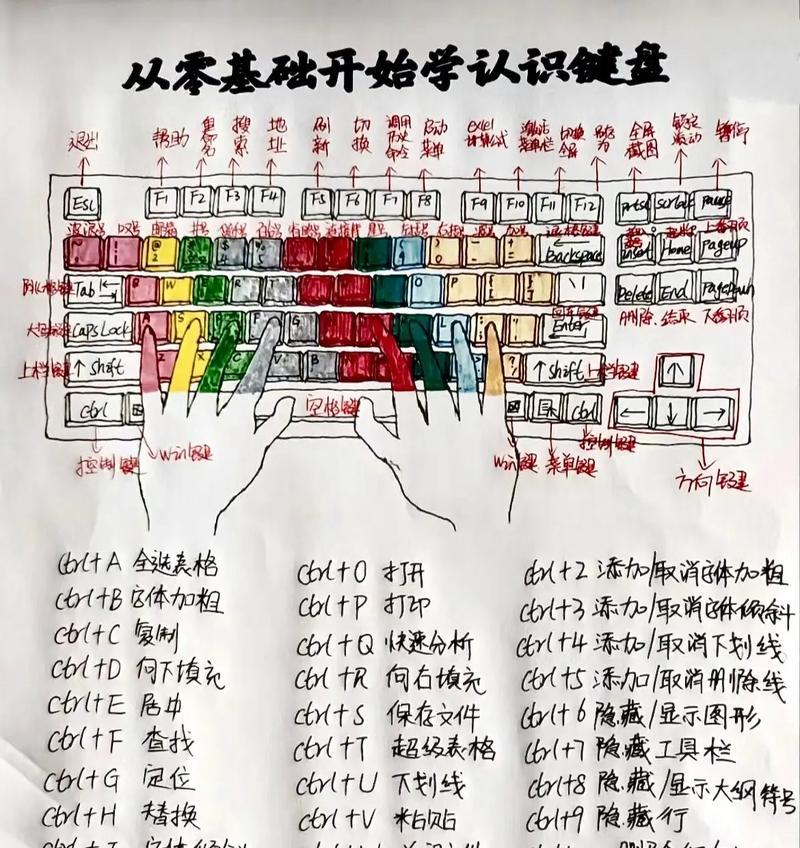 从零基础开始学认识键盘
退出 帮助 重命名 搜索 地址 刷新 切换 调用历史命令 启动菜单 excel 激活菜单栏 切换全屏 另存为 全屏截图 锁定滚动 暂停
Esc F1 F2 F3 F4 F5 F6 F7 F8 F9 F10 F11 F12 Prtsc Scrlock Pause
波浪号 井号 退格键 上翻页
Backspace Insert Home Pageup
Tab W E R T O P \ | Delete End Pagedown
删除 结束 下翻页
Caps Lock A S F G L Enter
上档键 ↑ Shift X C V B ↑ Shift 上档键 ↑
Ctrl 空格键 Ctrl ← ↓ →
控制键 Win键 Win键 菜单键 控制键 方向键
Ctrl+A 全选表格
Ctrl+B 字体加粗
Ctrl+C 复制
Ctrl+D 向下填充
Ctrl+E 居中
Ctrl+F 查找
Ctrl+G 定位
Ctrl+H 替换
Ctrl+O 打开
Ctrl+P 打印
Ctrl+Q 快速分析
Ctrl+R 向右填充
Ctrl+S 保存文件
Ctrl+T 超级表格
Ctrl+U 下划线
Ctrl+V 粘贴
Ctrl+2 添加/取消字体加粗
Ctrl+3 添加/取消字体倾斜
Ctrl+4 添加/取消下划线
Ctrl+5 添加/取消删除线
Ctrl+6 隐藏/显示图形
Ctrl+7 隐藏工具栏
Ctrl+8 隐藏/显示大纲符号
Ctrl+9 隐藏行